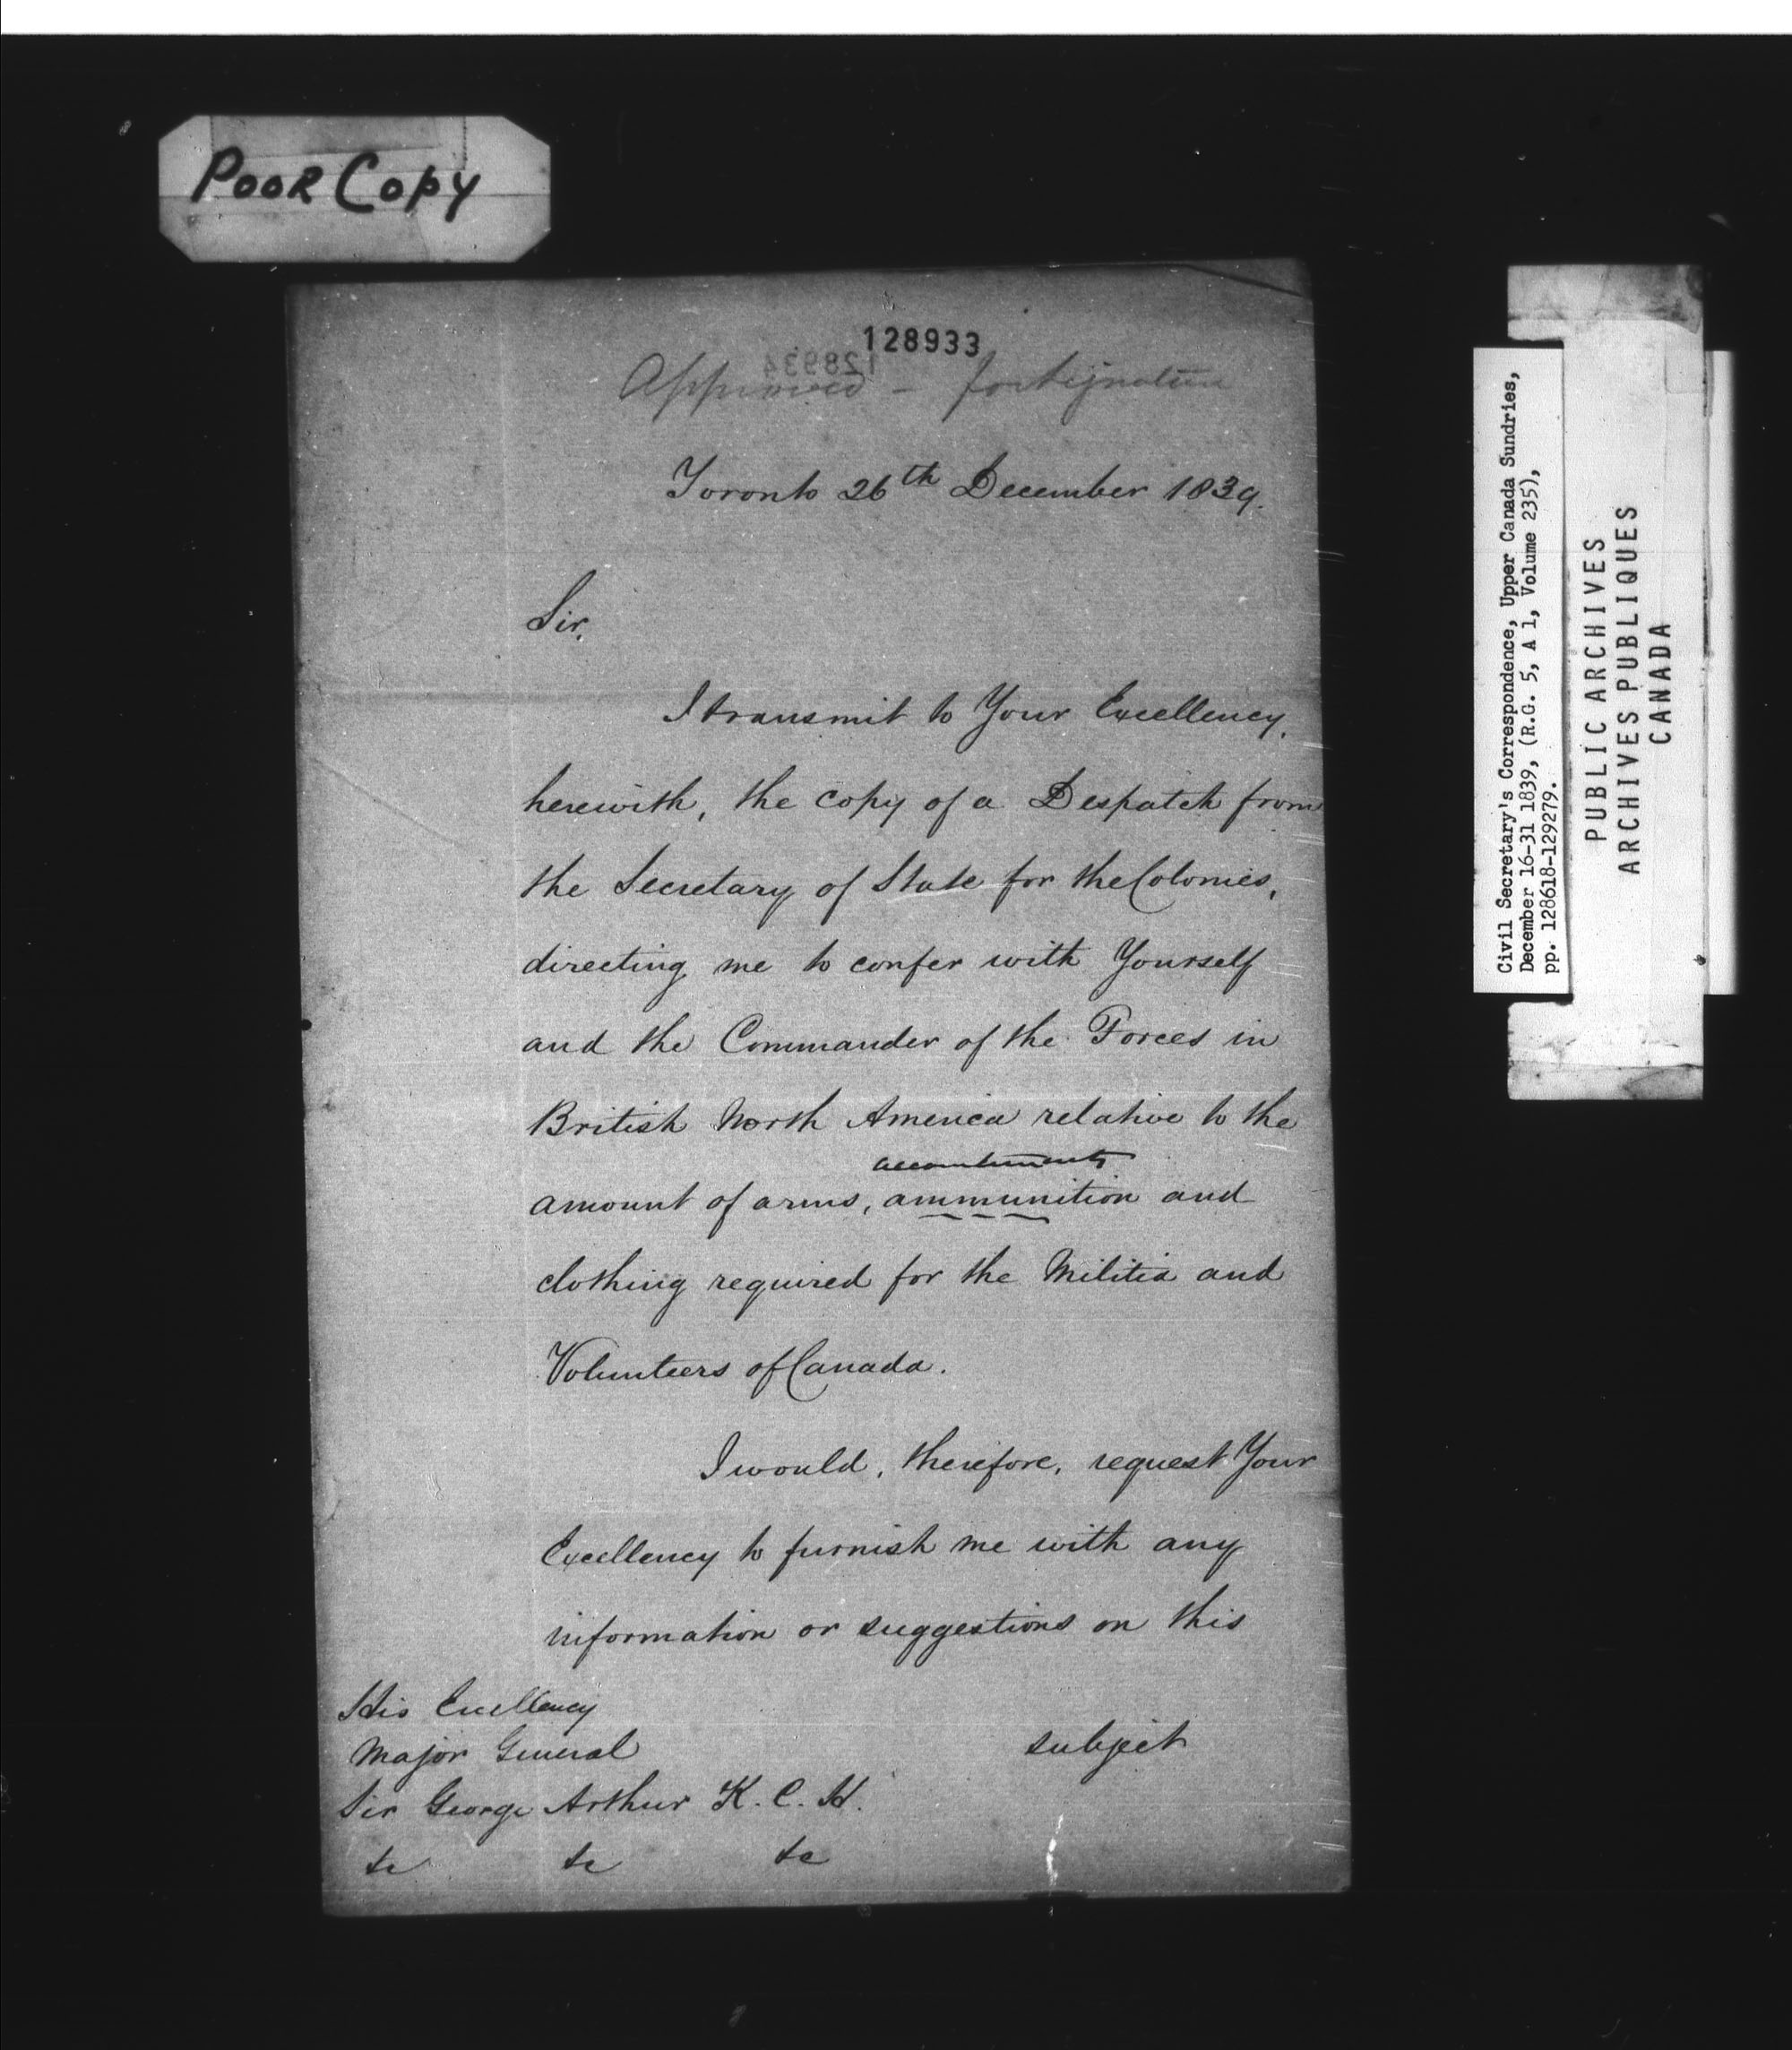 Poor Copy
128933
128934
Approved - for signature
Toronto 26th December 1839.
Sir,
I transmit to Your Excellency,
herewith, the copy of a Despatch from
the Secretary of State for the Colonies,
directing me to confer with Yourself
and the Commander of the Forces in
British North America relative to the
accoutrements
amount of arms, ammunition and
clothing required for the Militia and
Volunteers of Canada.
I would, therefore, request Your
Excellency to furnish me with any
information or suggestions on this
subject
His Excellency
Major General
Sir George Arthur K. C. H.
&c &c &c
Civil Secretary's Correspondence, Upper Canada Sundries,
December 16-31 1839, (R.G. 5, A 1, Volume 235),
pp. 128618-129279.
PUBLIC ARCHIVES
ARCHIVES PUBLIQUES
CANADA